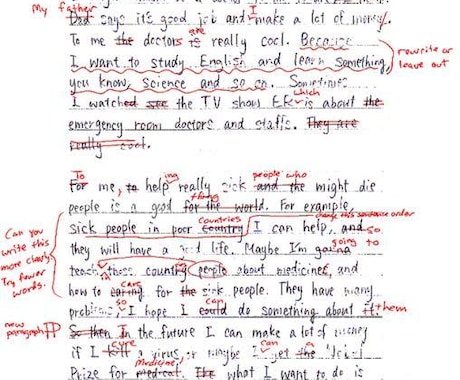 My father
Dad says it's good job and I make a lot of money.
are
To me the doctors is really cool. Because
I want to study English and learn something,
rewrite or leave out
you know, Science and so on. Sometimes
which
I watched see the TV show ER is about the
emergency room doctors and staffs. They are
really cool.
To ing people who
For me, to help really sick and the might die
thing
people is a good for the world. For example,
Countries change this sentence order
sick people in poor country I can help, and so
Can you write this more clearly Try fewer words.
they will have a life. Maybe I'm gonna
going to
teach those country people about medicines, and
in
care
how to caring for the sick people. They have many
so can
problems, I hope I could do something about it them
new paragraph
So then In the future I can make a lot of money
cure can a
if I kill a virus, or maybe I get the Nobel
medicine,
Prize for medical. The what I want to do is